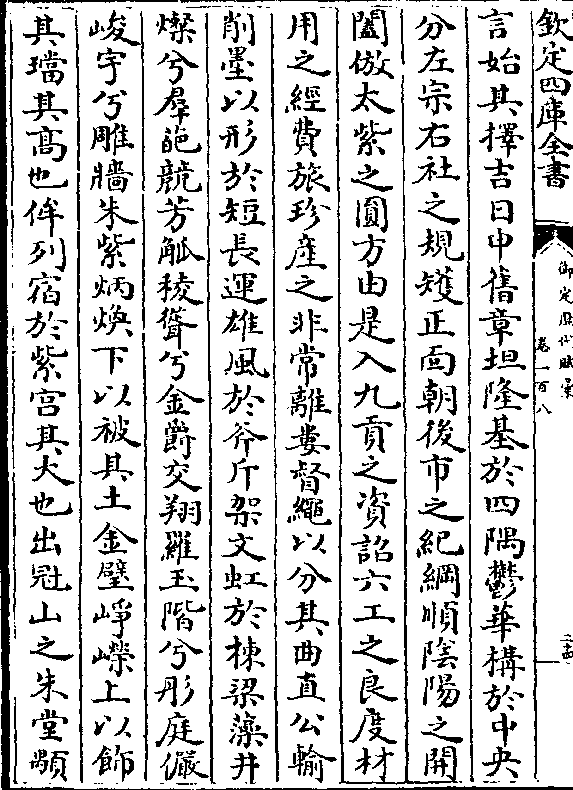 欽定四庫全書
御定歴代賦彙
卷一百八
言始其擇吉日申舊章坦隆基於四隅鬱華構於中央
分左宗右社之規矱正面朝後市之紀綱順陰陽之開
闔倣太紫之圓方由是入九貢之資詔六工之良度材
用之經費旅珍産之非常離婁督繩以分其曲直公輸
削墨以形於短長運雄風於斧斤架文虹於棟梁藻井
燦兮羣葩競芳觚稜聳兮金爵交翔羅玉階兮彤庭儼
峻宇兮雕牆朱紫炳煥下以被其土金璧崢嶸上以飾
其璫其高也侔列宿於紫宫其大也出冠山之朱堂顒